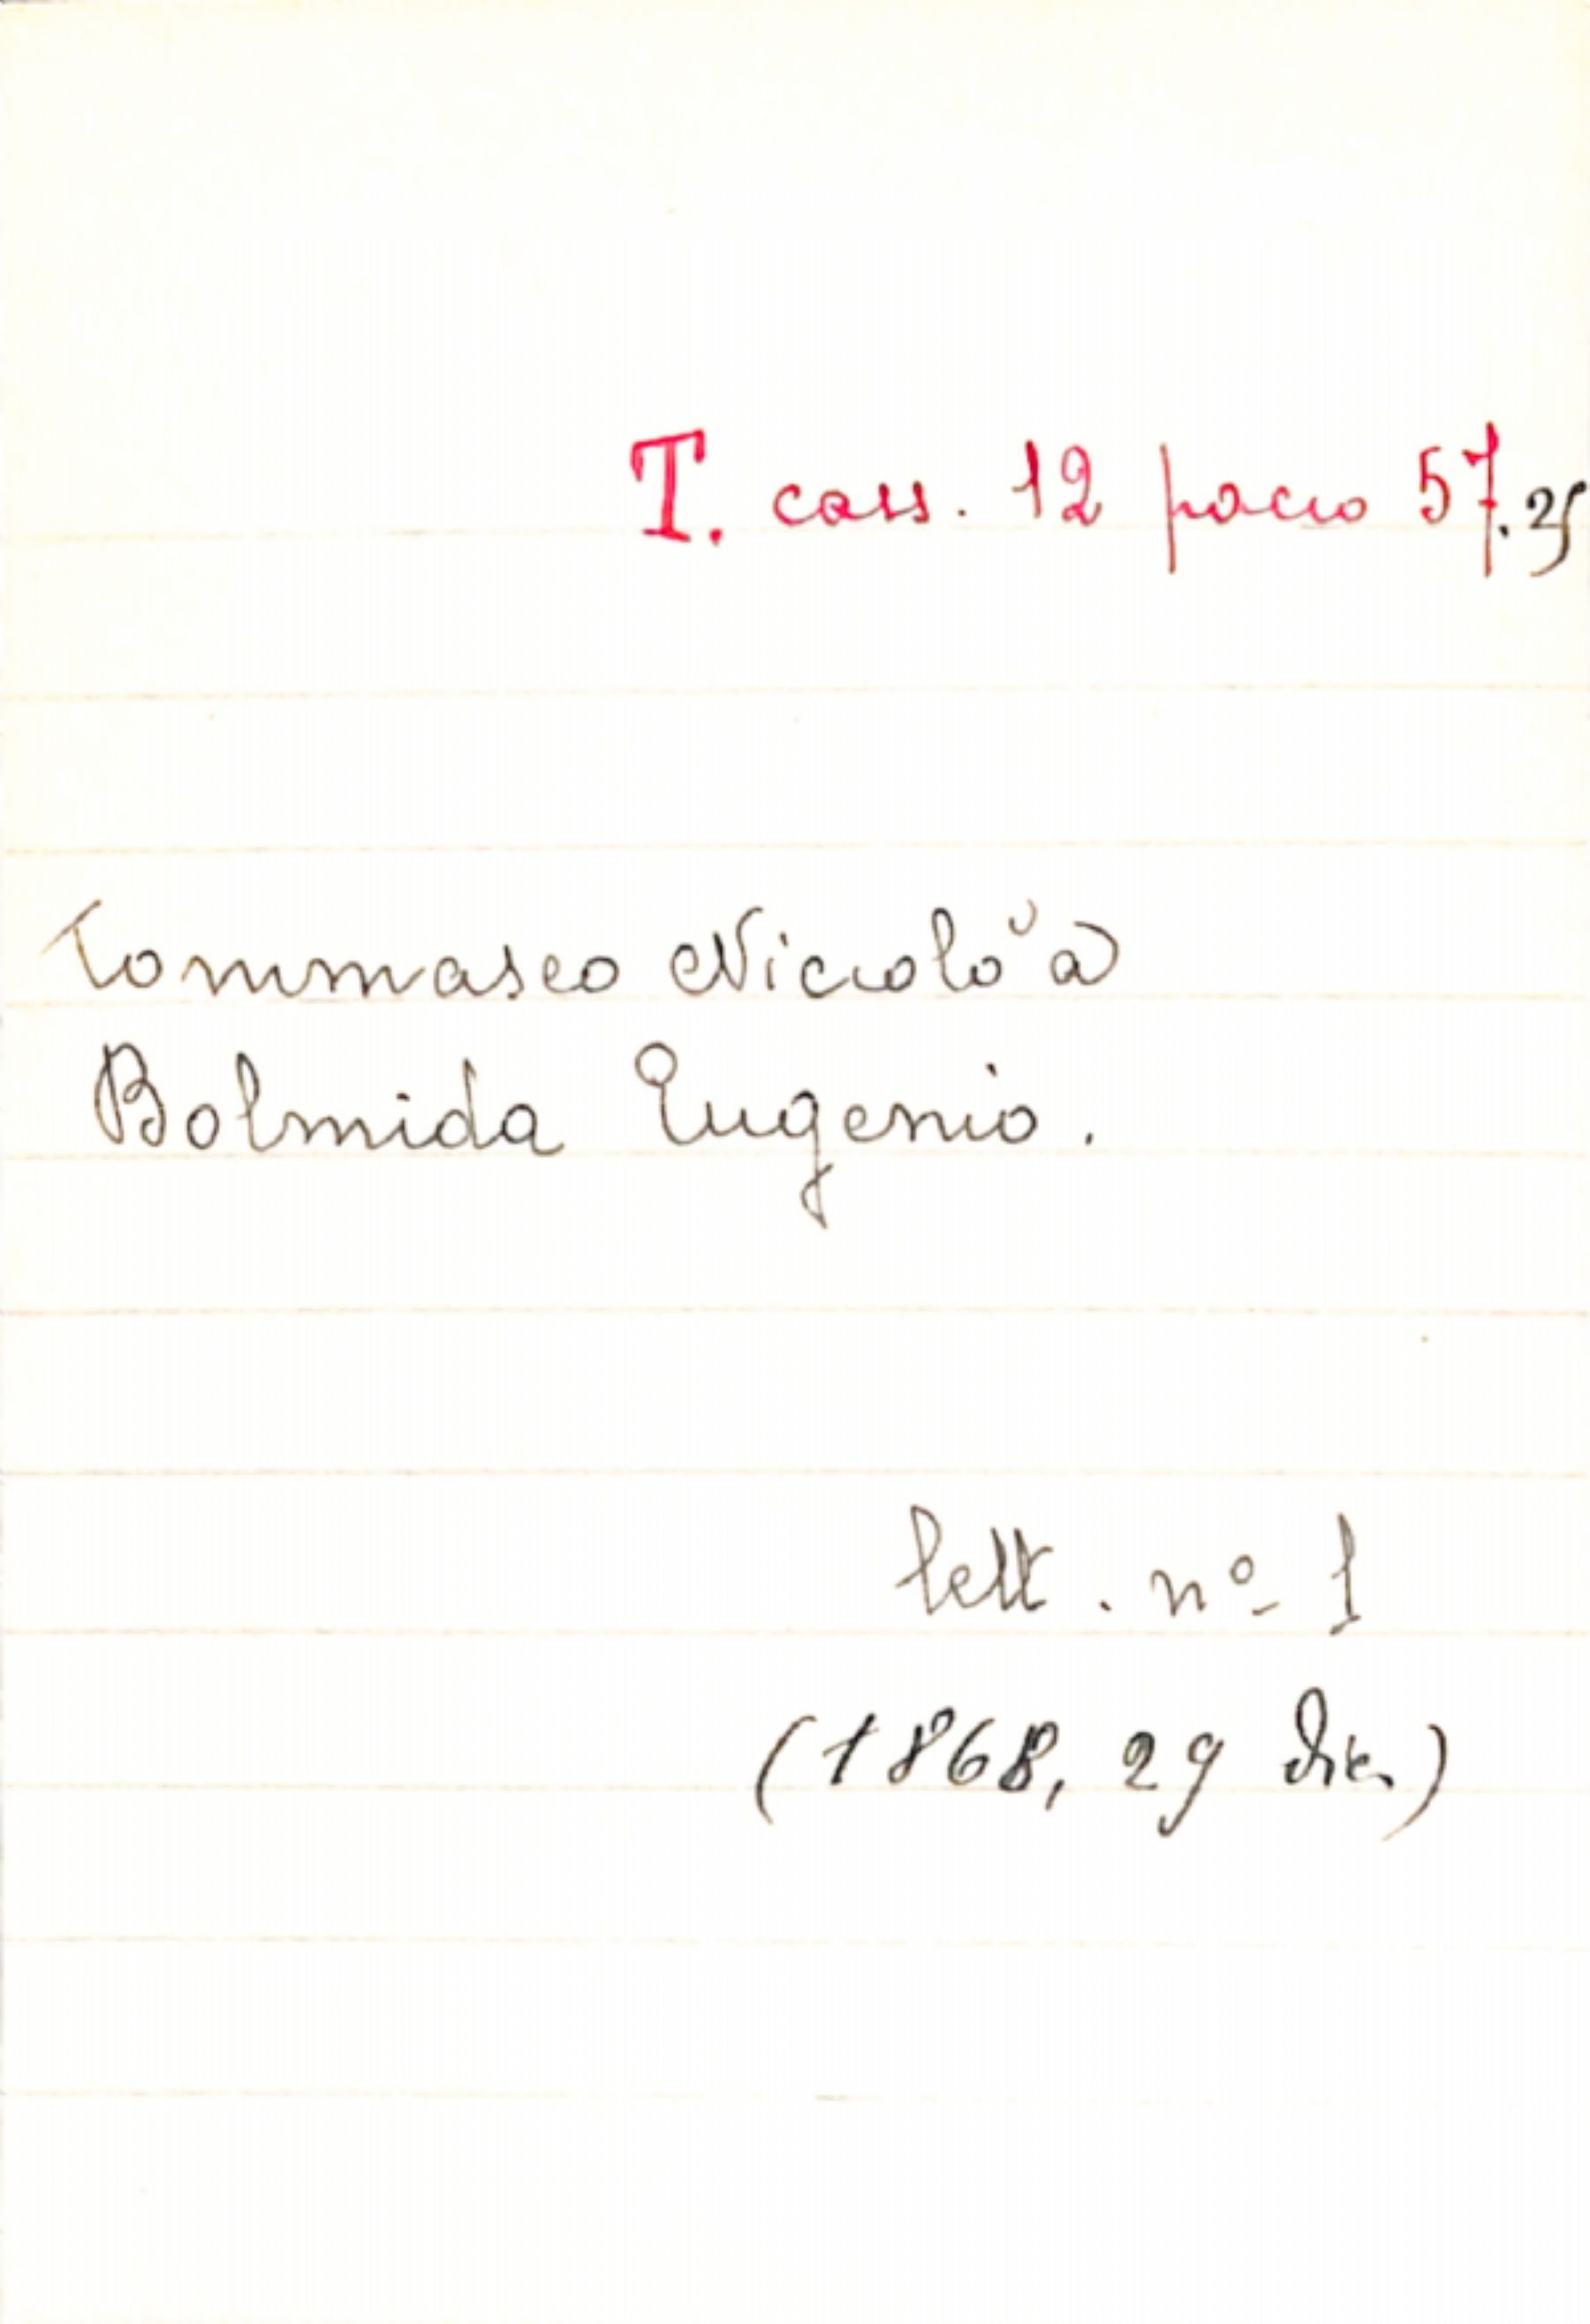 T. cass. 12 pacco 57.25
Tommaseo Niccolò a
Bolmida Eugenio.
lett. nº 1
(1868, 29 Dic.)